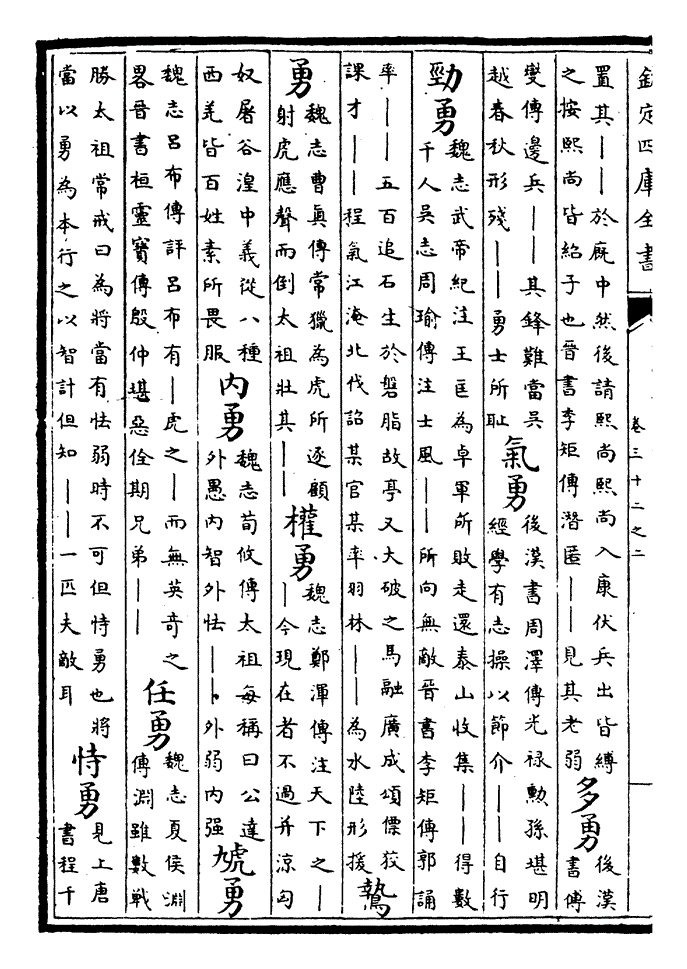 欽定四庫全書
卷三十二之二
置其——於厩中然後請熙尚熙尚入康伏兵出皆縛
之按熙尚皆紹子也晉書李矩傳潛匿——見其老弱
多勇
後漢
書傅
燮傳邊兵——其鋒難當吳
越春秋形殘——勇士所耻
氣勇
後漢書周澤傳光祿勲孫堪明
經學有志操以節介——自行
勁勇
魏志武帝紀注王匡為卓軍所敗走還泰山收集——得數
千人吳志周瑜傳注士風——所向無敵晉書李矩傳郭誦
率——五百追石生於磐脂故亭又大破之馬融廣成頌僄狡
課才——程氣江淹北伐詔某官某率羽林——為水陸形援
鷙
勇
魏志曹真傳常獵為虎所逐顧
射虎應聲而倒太祖壯其——
權勇
魏志鄭渾傳注天下之—
—今現在者不過并涼匈
奴屠谷湟中義從八種
西羌皆百姓素所畏服
内勇
魏志荀攸傳太祖每稱曰公達
外愚内智外怯——外弱内强
虓勇
魏志吕布傳評吕布有—虎之—而無英奇之
畧晉書桓靈寶傳殷仲堪惡佺期兄弟——
任勇
魏志夏侯淵
傳淵雖數戰
勝太祖常戒曰為將當有怯弱時不可但恃勇也將
當以勇為本行之以智計但知——一匹夫敵耳
恃勇
見上唐
書程千